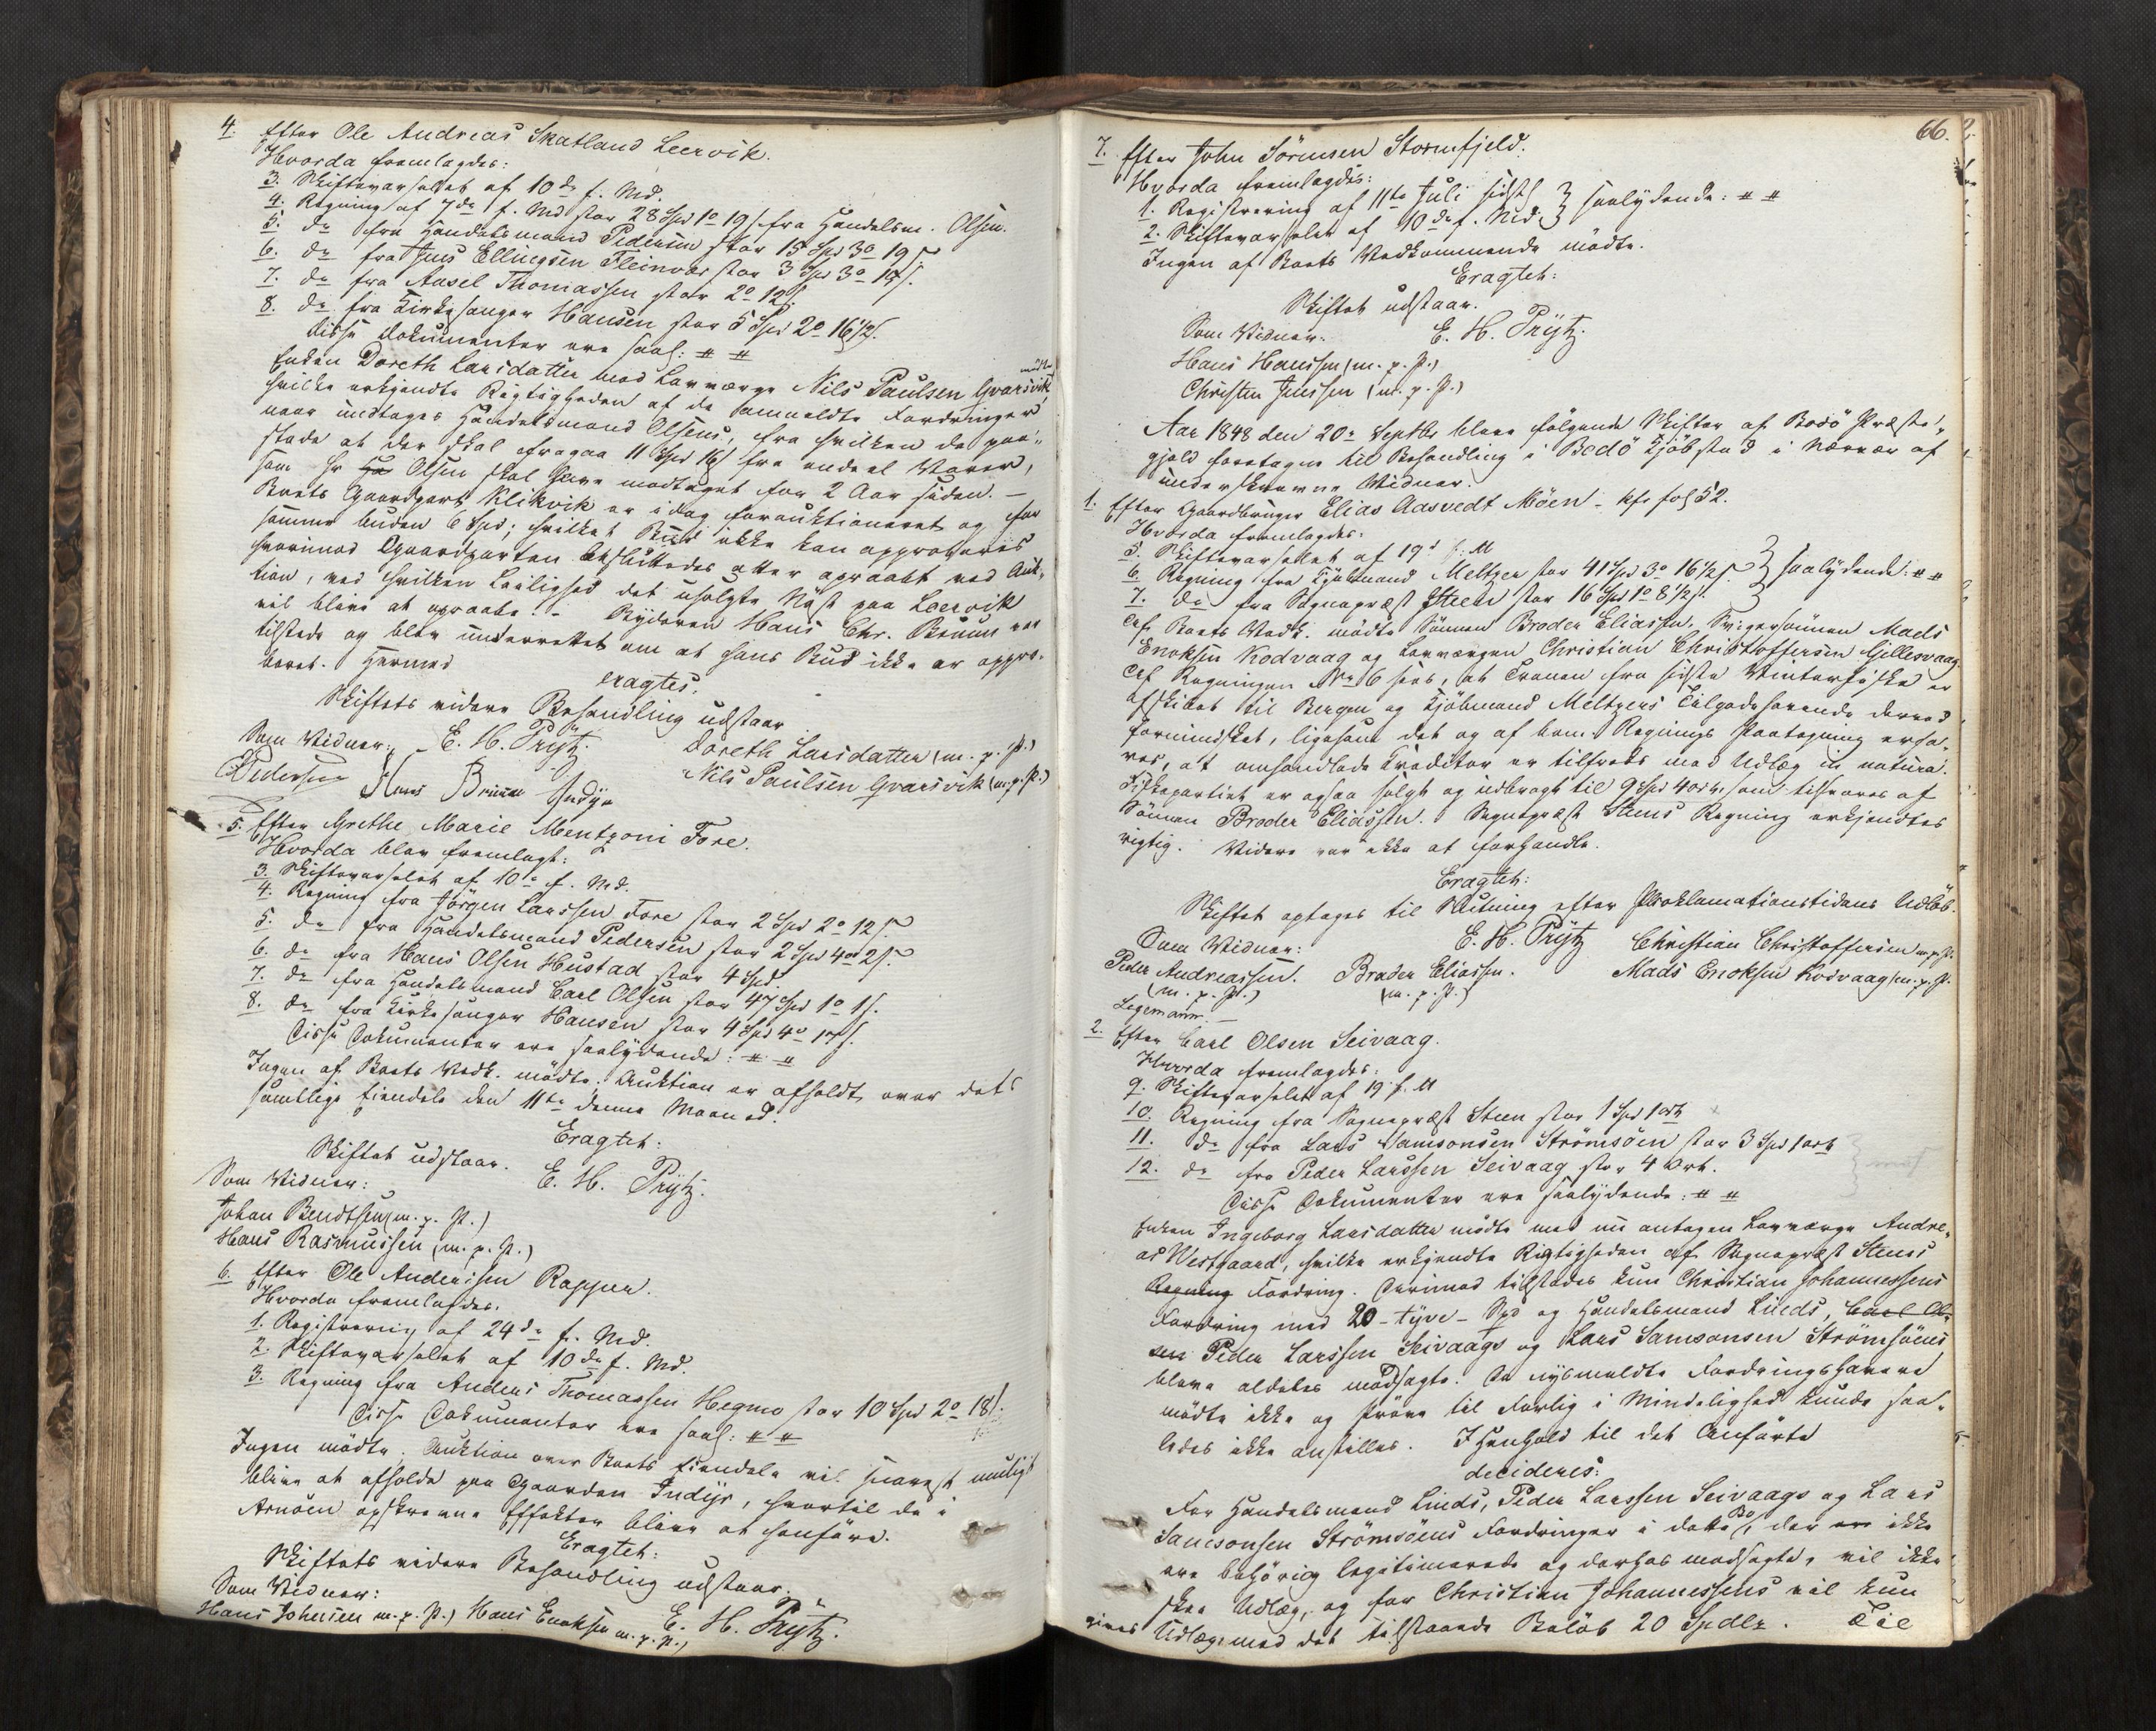 4. Efter Ole Andreas Skatland Leervik.
Hvorda fremlagdes:
3. Skiftevarselet af 10de f. Md.
4. Regning af 7de f. Md stor 28 Spd 1o 19 s. fra Handelsm. Olsen.
5. do fra Handelsmand Pedersen stor 15 Spd 3o 19 s.
6. do fra Jens Ellingsen Fleinvær stor 3 Spd 3o 19 s.
7. do fra Axsel Thomassen stor 2o 12 s.
8. do fra Kirkesanger Hansen stor 5 Spd 2o 16 1/2 s.
Disse Dokumenter ere saal: # #
Enken Doreth Larsdatter med Lavværge Nils Paulsen Gvarsvik mødte,
hvilke erkjendte Rigtigheden af de anmeldte Fordringer
naar undtages Handelsmand Olsens, fra hvilken de paa-
stode at der skal afragaa 11 Spd 16 s fra endeel Varer,
som Hr Ha Olsen skal have modtaget for 2 Aar siden. –
Boets Gaardpart Klikvik er idag forauktioneret og for
samme buden 6 Spd; hvilket Bud ikke kan approberes
hvorimod Gaardparten besluttedes atter opraabt ved Auk-
tion, ved hvilken Leilighed det usolgte Nøst paa Leervik
vil blive at opraabe. – Byderen Hans Chr. Bruun var
tilstede og blev underrettet om at hans Bud ikke er appro-
beret. Hermed
eragtes:
Skiftets videre Behandling udstaar
Som Vidner: E. H. Prÿtz. Doreth Larsdatter (m. p. P.)
Pedersen Hans Bruun Indÿr Nils Paulsen Gvarsvik (m. p. P.)
5. Efter Grethe Marie Mentzoni Fore.
Hvorda blev fremlagt:
3. Skiftevarselet af 10de f. Md.
4. Regning fra Jørgen Larssen Fore stor 2 Spd 2o 12 s.
5. do fra Handelsmand Pedersen stor 2 Spd 4o 2 s.
6. do fra Hans Olsen Hustad stor 4 Spd.
7. do fra Handelsmand Carl Olsen stor 47 Spd 1o 1 s.
8. do fra Kirkesanger Hansen stor 4 Spd 4o 17 s.
Disse Dokumenter ere saalydende: # #
Ingen af Boets Vedk. mødte. Auktion er afholdt over dets
samtlige Eiendele den 11te denne Maaned.
Eragtet:
Skiftet udstaar.
Som Vidner: E. H. Prÿtz.
Johan Bendtsen (m. p. P.)
Hans Rasmussen (m. p. P.)
6. Efter Ole Andersen Rappen.
Hvorda fremlagdes.
1. Registrering af 24de f. Md.
2. Skiftevarselet af 10de f. Md.
3. Regning fra Anders Thomassen Hegmo stor 10 Spd 2o 18 s.
Disse Dokumenter ere saal: # #
Ingen mødte. Auktion over Boets Eiendele vil snarest muligt
blive at afholde paa Gaarden Indÿr, hvortil de i
Arnøen opskrevne Effekter bliver at henføre.
Eragtet:
Skiftets videre Behandling udstaar.
Som Vidner: E. H. Prÿtz.
Hans Johnsen m. p. P.) Hans Enoksen m. p. P.)
66.
7. Efter John Sörensen Stormfjeld.
Hvorda fremlagdes:
1. Registrering af 11te Juli sidstl } saalydende: # #
2. Skiftevarselet af 10de f. Md. }
Ingen af Boets Vedkommende mødte.
Eragtet:
Skiftet udstaar.
Som Vidner: E. H. Prÿtz.
Hans Hanssen (m. p. P.)
Christen Jenssen (m. p. P.)
Aar 1848 den 20de Septbr bleve følgende Skifter af Bodö Præste-
gjeld foretagne til Behandling i Bodö Kjöbstad i Nærvær af
underskrevne Vidner.
1. Efter Gaardbruger Elias Aasvedt Möen – kfr fol 52.
Hvorda fremlagdes:
5. Skiftevarselet af 19de f. M
6. Regning fra Kjöbmand Meltzer stor 41 Spd 3o 16 1/2 s. } saalydende: # #
7. do fra Sognepræst Steen stor 16 Spd 1o 8 1/2 s.
Af Boets Vedk. mødte Sønnen Broder Eliassen, Svigersønnen Mads
Enoksen Kodvaag og Lavværgen Christian Christoffersen Gillesvaag.
Af Regningen No 6 sees, at Tranen fra sidste Vinterfiske er
afskibet til Bergen og Kjöbmand Meltzers Tilgodehavende derved
formindsket, ligesom det og af bem. Regnings Paategning erfa-
res, at omhandlede Kreditor er tilfreds med Udlæg in natura.
Fiskepartiet er ogsaa solgt og udbragt til 9 Spd 4 ort som tilsvares af
Sønnen Broder Eliassen. Sognepræst Steens Regning erkjendtes
rigtig. Videre var ikke at forhandle.
Eragtet:
Skiftet optages til Slutning efter Proklamationstidens Udløb.
Som Vidner: E. H. Prÿtz Christian Christoffersen m. p. P.
Peder Andreassen. Broder Eliassen. Mads Enoksen Kodvaag (m. p. P.
(m. p. P.) (m. p. P.)
Legemann. –
2. Efter Carl Olsen Seivaag.
Hvorda fremlagdes:
9. Skiftevarselet af 19 f. M
10. Regning fra Sognepræst Steen stor 1 Spd 1 ort
11. do fra Lars Samsonsen Strömsöen stor 3 Spd 1 ort
12. do fra Peder Larssen Seivaag stor 4 Ort.
Disse Dokumenter ere saalydende: # #
Enken Ingeborg Larsdatter mødte med nu antagen Lavværge Andre-
as Vestgaard, hvilke erkjendte Rigtigheden af Sognepræst Steens
Regning Fordring. Derimod tilstodes kun Christian Johannessens
Fordring med 20 – tyve – Spd og Handelsmand Linds, Carl Ol-
sen Peder Larssen Seivaags og Lars Samsonsen Strömsöens
bleve aldeles modsagte. De nysmeldte Fordringshavere
mødte ikke og Prøve til Forlig i Mindelighed kunde saa-
ledes ikke anstilles. I Henhold til det Anførte
decideres:
For Handelsmand Linds, Peder Larssen Seivaags og Lars
Samsonsen Strömsöens Fordringer i dette Bo, der er ikke
ere behörig legitimerede og derhos modsagte, vil ikke
skee Udlæg, og for Christian Johannessens vil kun
gives Udlæg med det tilstaaede Belöb 20 Spdlr. Til